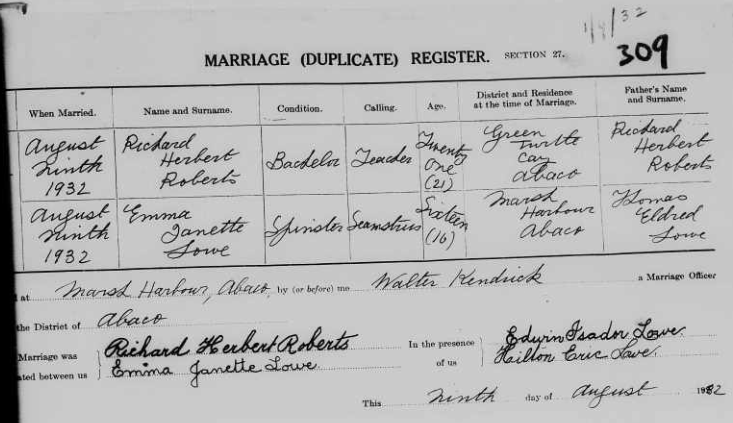 1/9/32
309
MARRIAGE (DUPLICATE) REGISTER. SECTION 27.
When Married. Name and Surname. Condition. Calling. Age. District and Residence at the time of Marriage. Father's Name and Surname.
August Ninth 1932 Richard Herbert Roberts Bachelor Teacher Twenty One (21) Green Turtle Cay Abaco Richard Herbert Roberts
August Ninth 1932 Emma Janette Lowe Spinster Seamstress Sixteen (16) Marsh Harbour Abaco Thomas Eldred Lowe
at Marsh Harbour, Abaco, by (or before) me Walter Kendrick a Marriage Officer
the District of Abaco
Marriage was Richard Herbert Roberts In the presence Edwin Isador Lowe.
ated between us Emma Janette Lowe of us Hilton Eric Lowe.
This Ninth day of August 1932